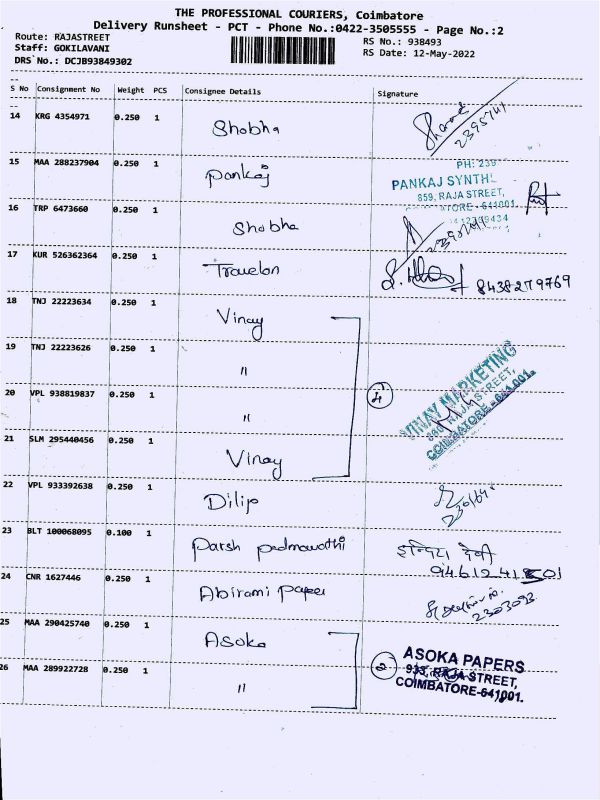 THE PROFESSIONAL COURIERS, Coimbatore
Delivery Runsheet - PCT - Phone No.:0422-3505555 - Page No.:2
Route: RAJASTREET
RS No.: 938493
Staff: GOKILAVANI
RS Date: 12-May-2022
DRS No.: DCJB93849302
S No Consignment No Weight PCS Consignee Details Signature
14 KRG 4354971 0.250 1 Shobha
2395741
15 MAA 288237904 0.250 1 Pankaj
PH: 239
PANKAJ SYNTH
859, RAJA STREET,
TORE - 641001
16 TRP 6473660 0.250 1 Shobha
17 KUR 526362364 0.250 1 Travelon
8438279769
18 TNJ 22223634 0.250 1 Vinay
19 TNJ 22223626 0.250 1 "
20 VPL 938819837 0.250 1 " 4
VINAY MARKETING
RAJA STREET,
COIMBATORE - 641001.
21 SLM 295440456 0.250 1 Vinay
22 VPL 933392638 0.250 1 Dilip
23 BLT 100068095 0.100 1 Parsh padmavathi
देवी
24 CNR 1627446 0.250 1 Abirami paper
2303093
25 MAA 290425740 0.250 1 Asoka
26 MAA 289922728 0.250 1 " 2
ASOKA PAPERS
933, RAJA STREET,
COIMBATORE-641001.